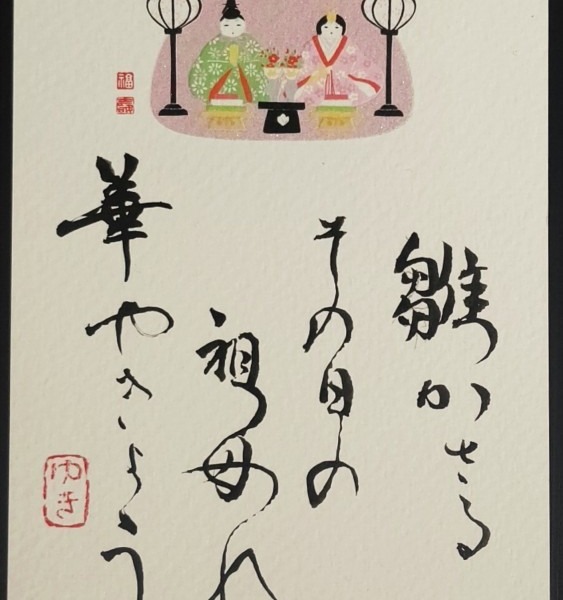 雛かさる
その日の
祖母の
華やきよう
ゆき
福
壽